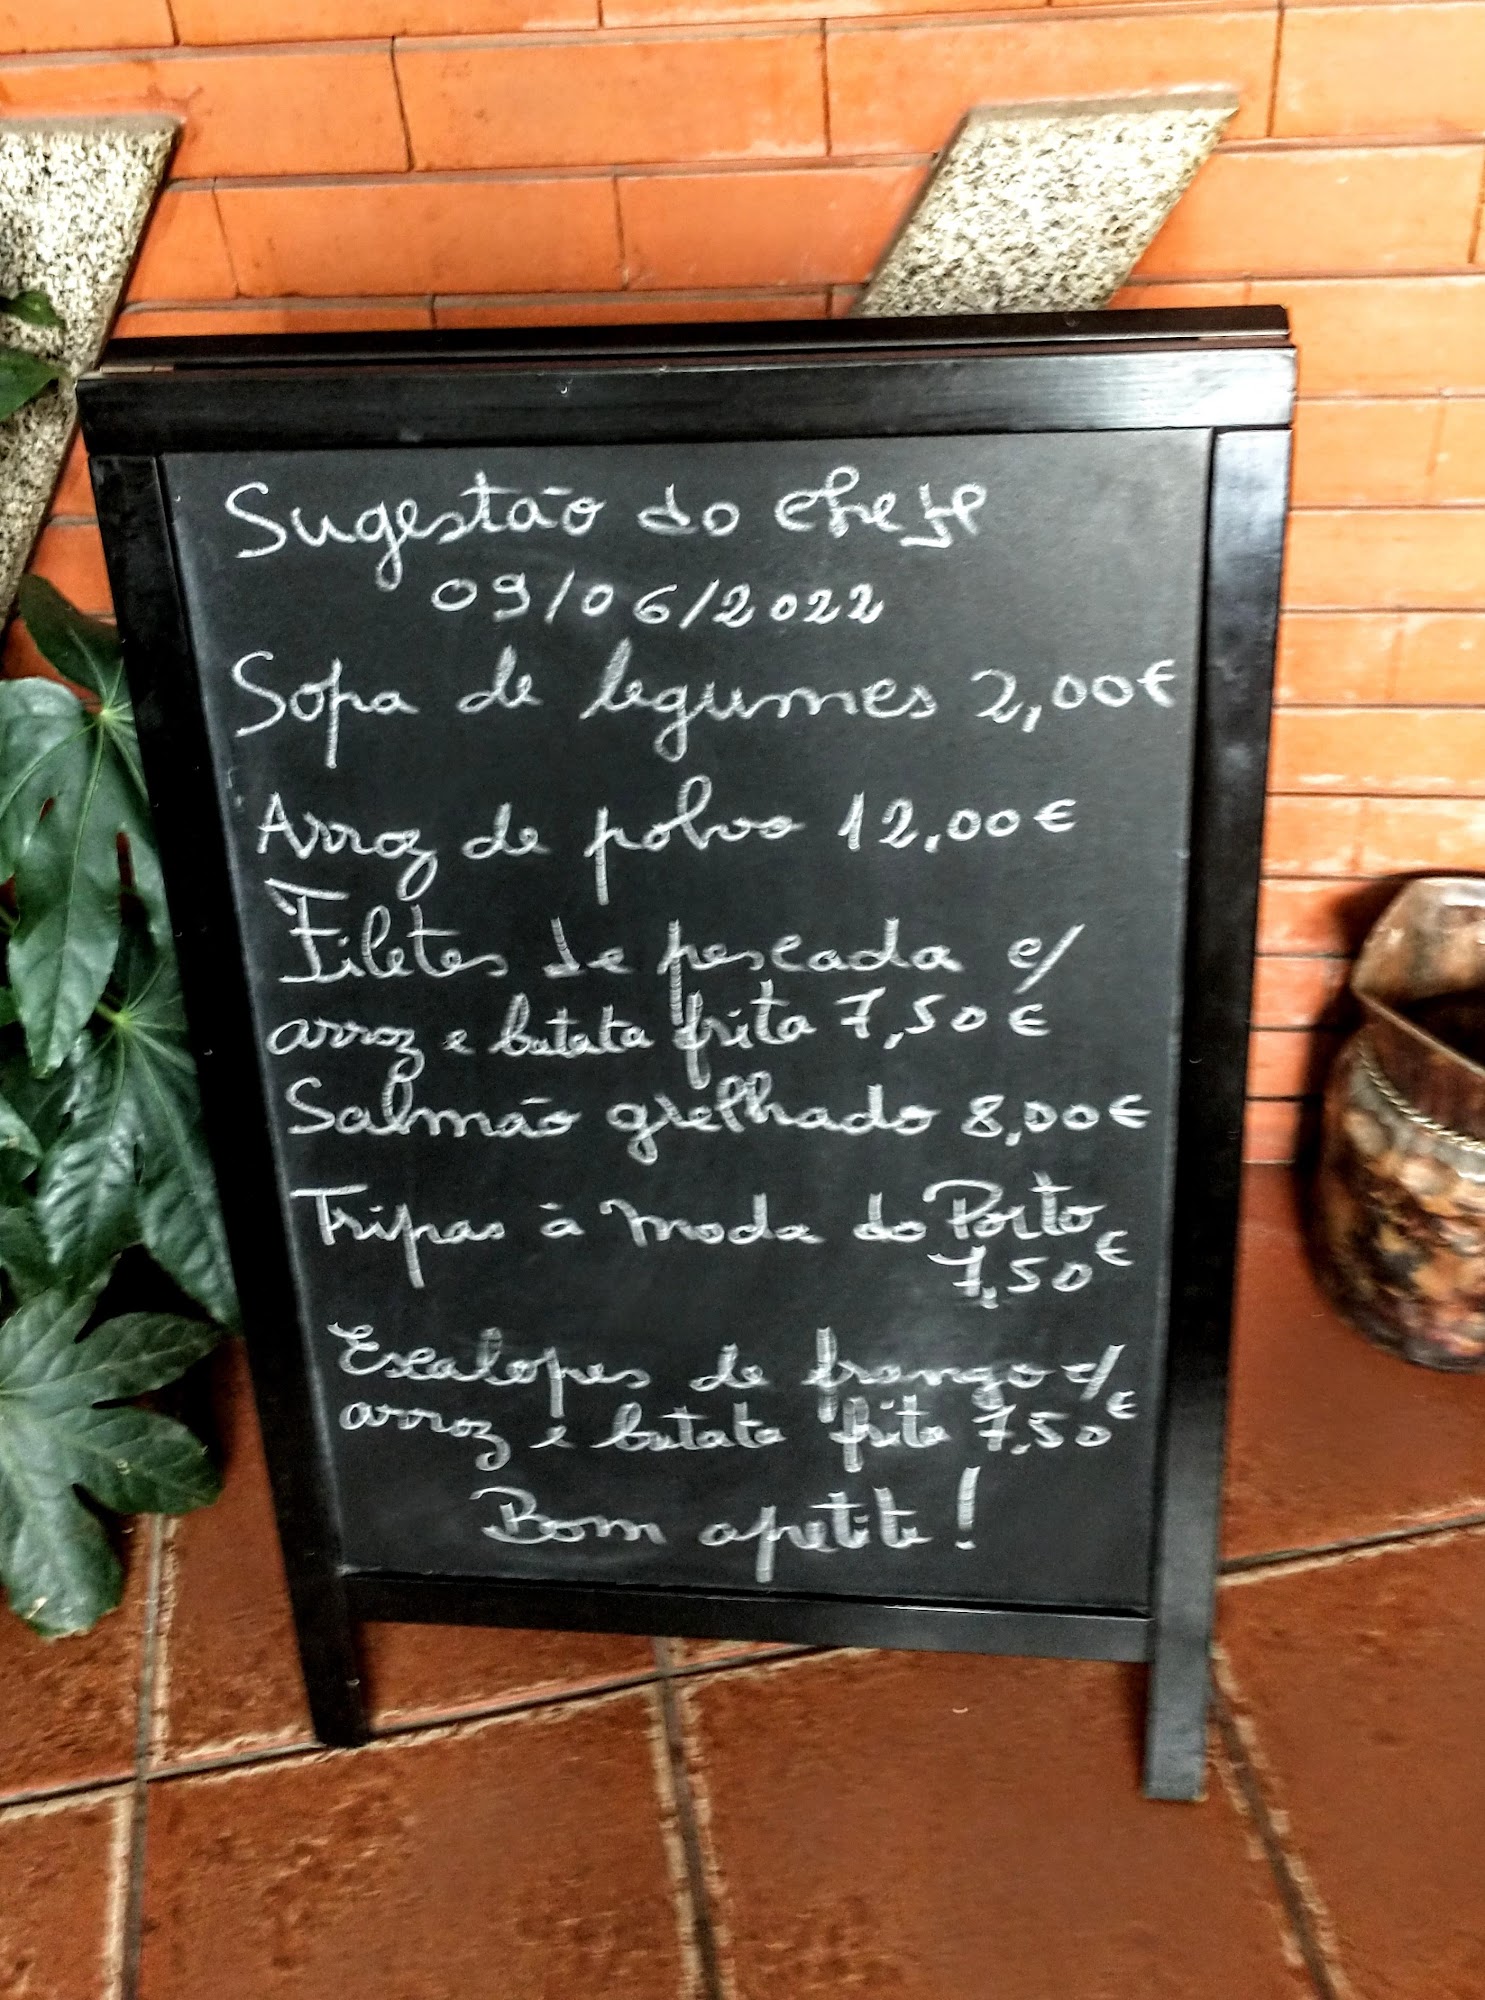 Sugestão do chefe
09/06/2022
Sopa de legumes 2,00€
Arroz de polvo 12,00€
Filetes de pescada c/
arroz e batata frita 7,50€
Salmão grelhado 8,00€
Tripas à moda do Porto
7,50€
Escalopes de frango c/
arroz e batata frita 7,50€
Bom apetite!